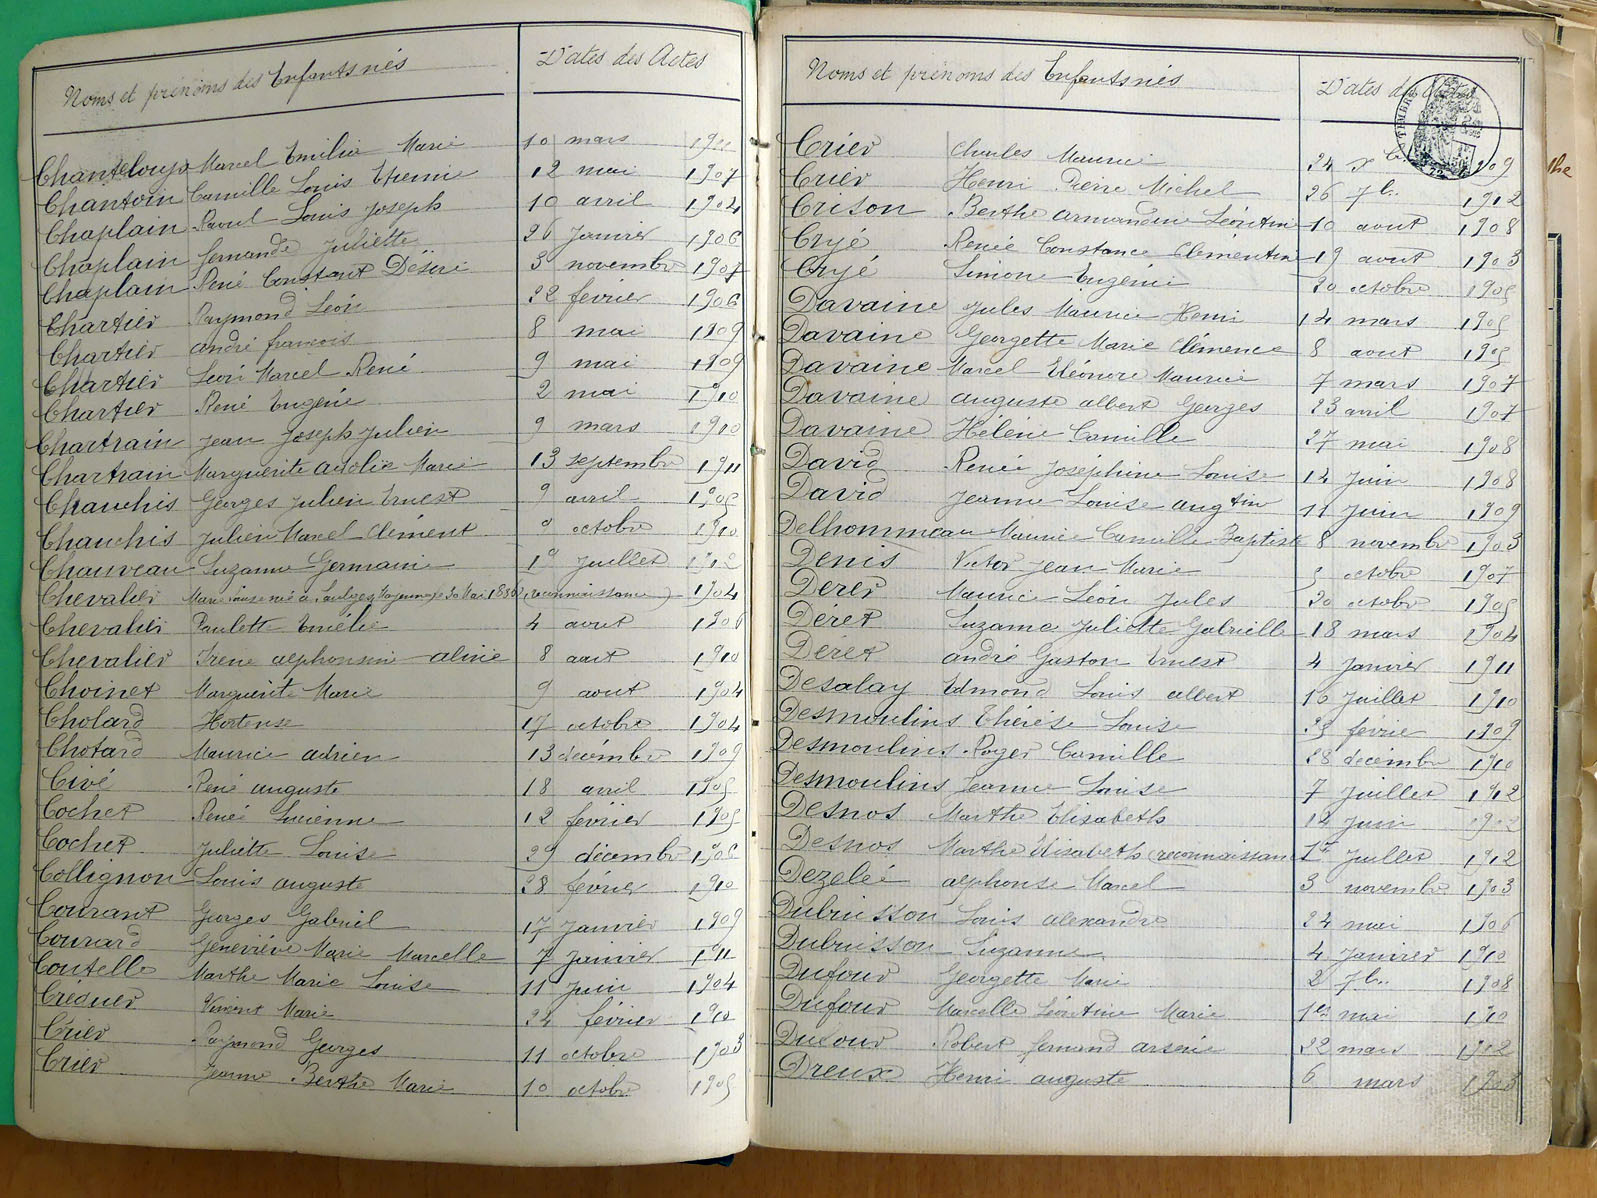 Noms et prénoms des Enfants nés Dates des Actes
Chanteloup Marcel Emilia Marie 10 mars
Chantoin Camille Louis Etienne 12 mai 1907
Chaplain Raoul Louis Joseph 10 avril 1904
Chaplain fernande Juliette 26 Janvier 1906
Chaplain René Constant Désiré 3 novembre 1907
Chartier Raymond Léon 22 fevrier 1906
Chartier andré francois 8 mai 1909
Chartier Léon Marcel René 9 mai 1909
Chartier René Eugène 2 mai 1910
Chartrain Jean Joseph Julien 9 mars 1910
Chartrain Marguerite Marie 13 septembre 1911
Chauchis Georges Julien Ernest 9 avril 1905
Chauchis Julien Marcel Clément 9 octobre 1910
Chauveau Suzanne Germaine 19 Juillet 1912
Chevalier Marie née à Saulges Mayenne le 30 Mai 1886 (reconnaissance) 1904
Chevalier Paulette Emélie 4 aout 1906
Chevalier Irene alphonsine aline 8 aout 1910
Choinet Marguerite Marie 9 aout 1904
Cholard Hortense 17 octobre 1904
Chotard Maurice adrien 13 decémbre 1909
Civé René auguste 18 avril 1905
Cochet Renée Lucienne 12 février 1905
Cochet Juliette Louise 29 décembre 1906
Collignon Louis auguste 28 février 1910
Courant Georges Gabriel 17 Janvier 1909
Couvard Geneviève Marie Marcelle 7 Janvier 1911
Coutelle Marthe Marie Louise 11 Juin 1904
Créquer Vincent Marie 24 février 1910
Crier Raymond Georges 11 octobre 1903
Crier Jeanne Berthe Marie 10 octobre 1905
Noms et prénoms des Enfants nés Dates des Actes
Crier Charles Maurice 24 xbre 1909
Crier Henri Pierre Michel 26 7b. 1912
Crison Berthe armandine Léontine 10 aout 1908
Cryé Renée Constance Clementine 19 aout 1903
Cryé Simone Eugénie 20 octobre 1905
Davaine Jules Maurice Henri 14 mars 1905
Davaine Georgette Marie Clémence 8 aout 1905
Davaine Marcel Eléonore Maurice 7 mars 1907
Davaine auguste albert Georges 23 avril 1907
Davaine Hélène Camille 27 mai 1908
David Renée Joséphine Louise 12 Juin 1908
David Jeanne Louise augtine 11 Juin 1909
Delhommeau Maurice Camille Baptiste 8 novembre 1903
Denis Victor Jean Marie 5 octobre 1907
Derer Maurice Léon Jules 20 octobre 1905
Déret Suzanne Juliette Gabrielle 18 mars 1904
Déret andré Gaston Ernest 4 Janvier 1911
Desalay Edmond Louis albert 16 Juillet 1910
Desmoulins Thérèse Louise 25 févrie 1909
Desmoulins Roger Camille 28 decémbre 1910
Desmoulins Jeanne Louise 7 Juillet 1912
Desnos Marthe Elisabeth 12 Juin 1912
Desnos Marthe Elisabeth (reconnaissance) 1er Juillet 1912
Dezelée alphonse Marcel 3 novembre 1903
Dubuisson Louis alexandre 24 mai 1906
Dubuisson Suzanne 4 Janvier 1910
Dufour Georgette Marie 2 7b. 1908
Dufour Marcelle Léontine Marie 1er mai 1910
Dufour Robert fernand arsene 22 mars 1912
Dreux Henri auguste 6 mars 1903